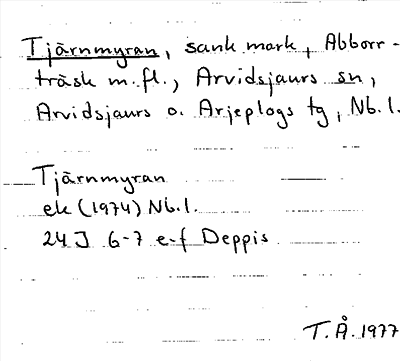 Tjärnmyran, sank mark, Abborr-
träsk m.fl., Arvidsjaurs sn,
Arvidsjaurs o. Arjeplogs tg, Nb.l.
Tjärnmyran
ek (1974) Nb.l.
24J 6-7 e-f Deppis
T.Å. 1977